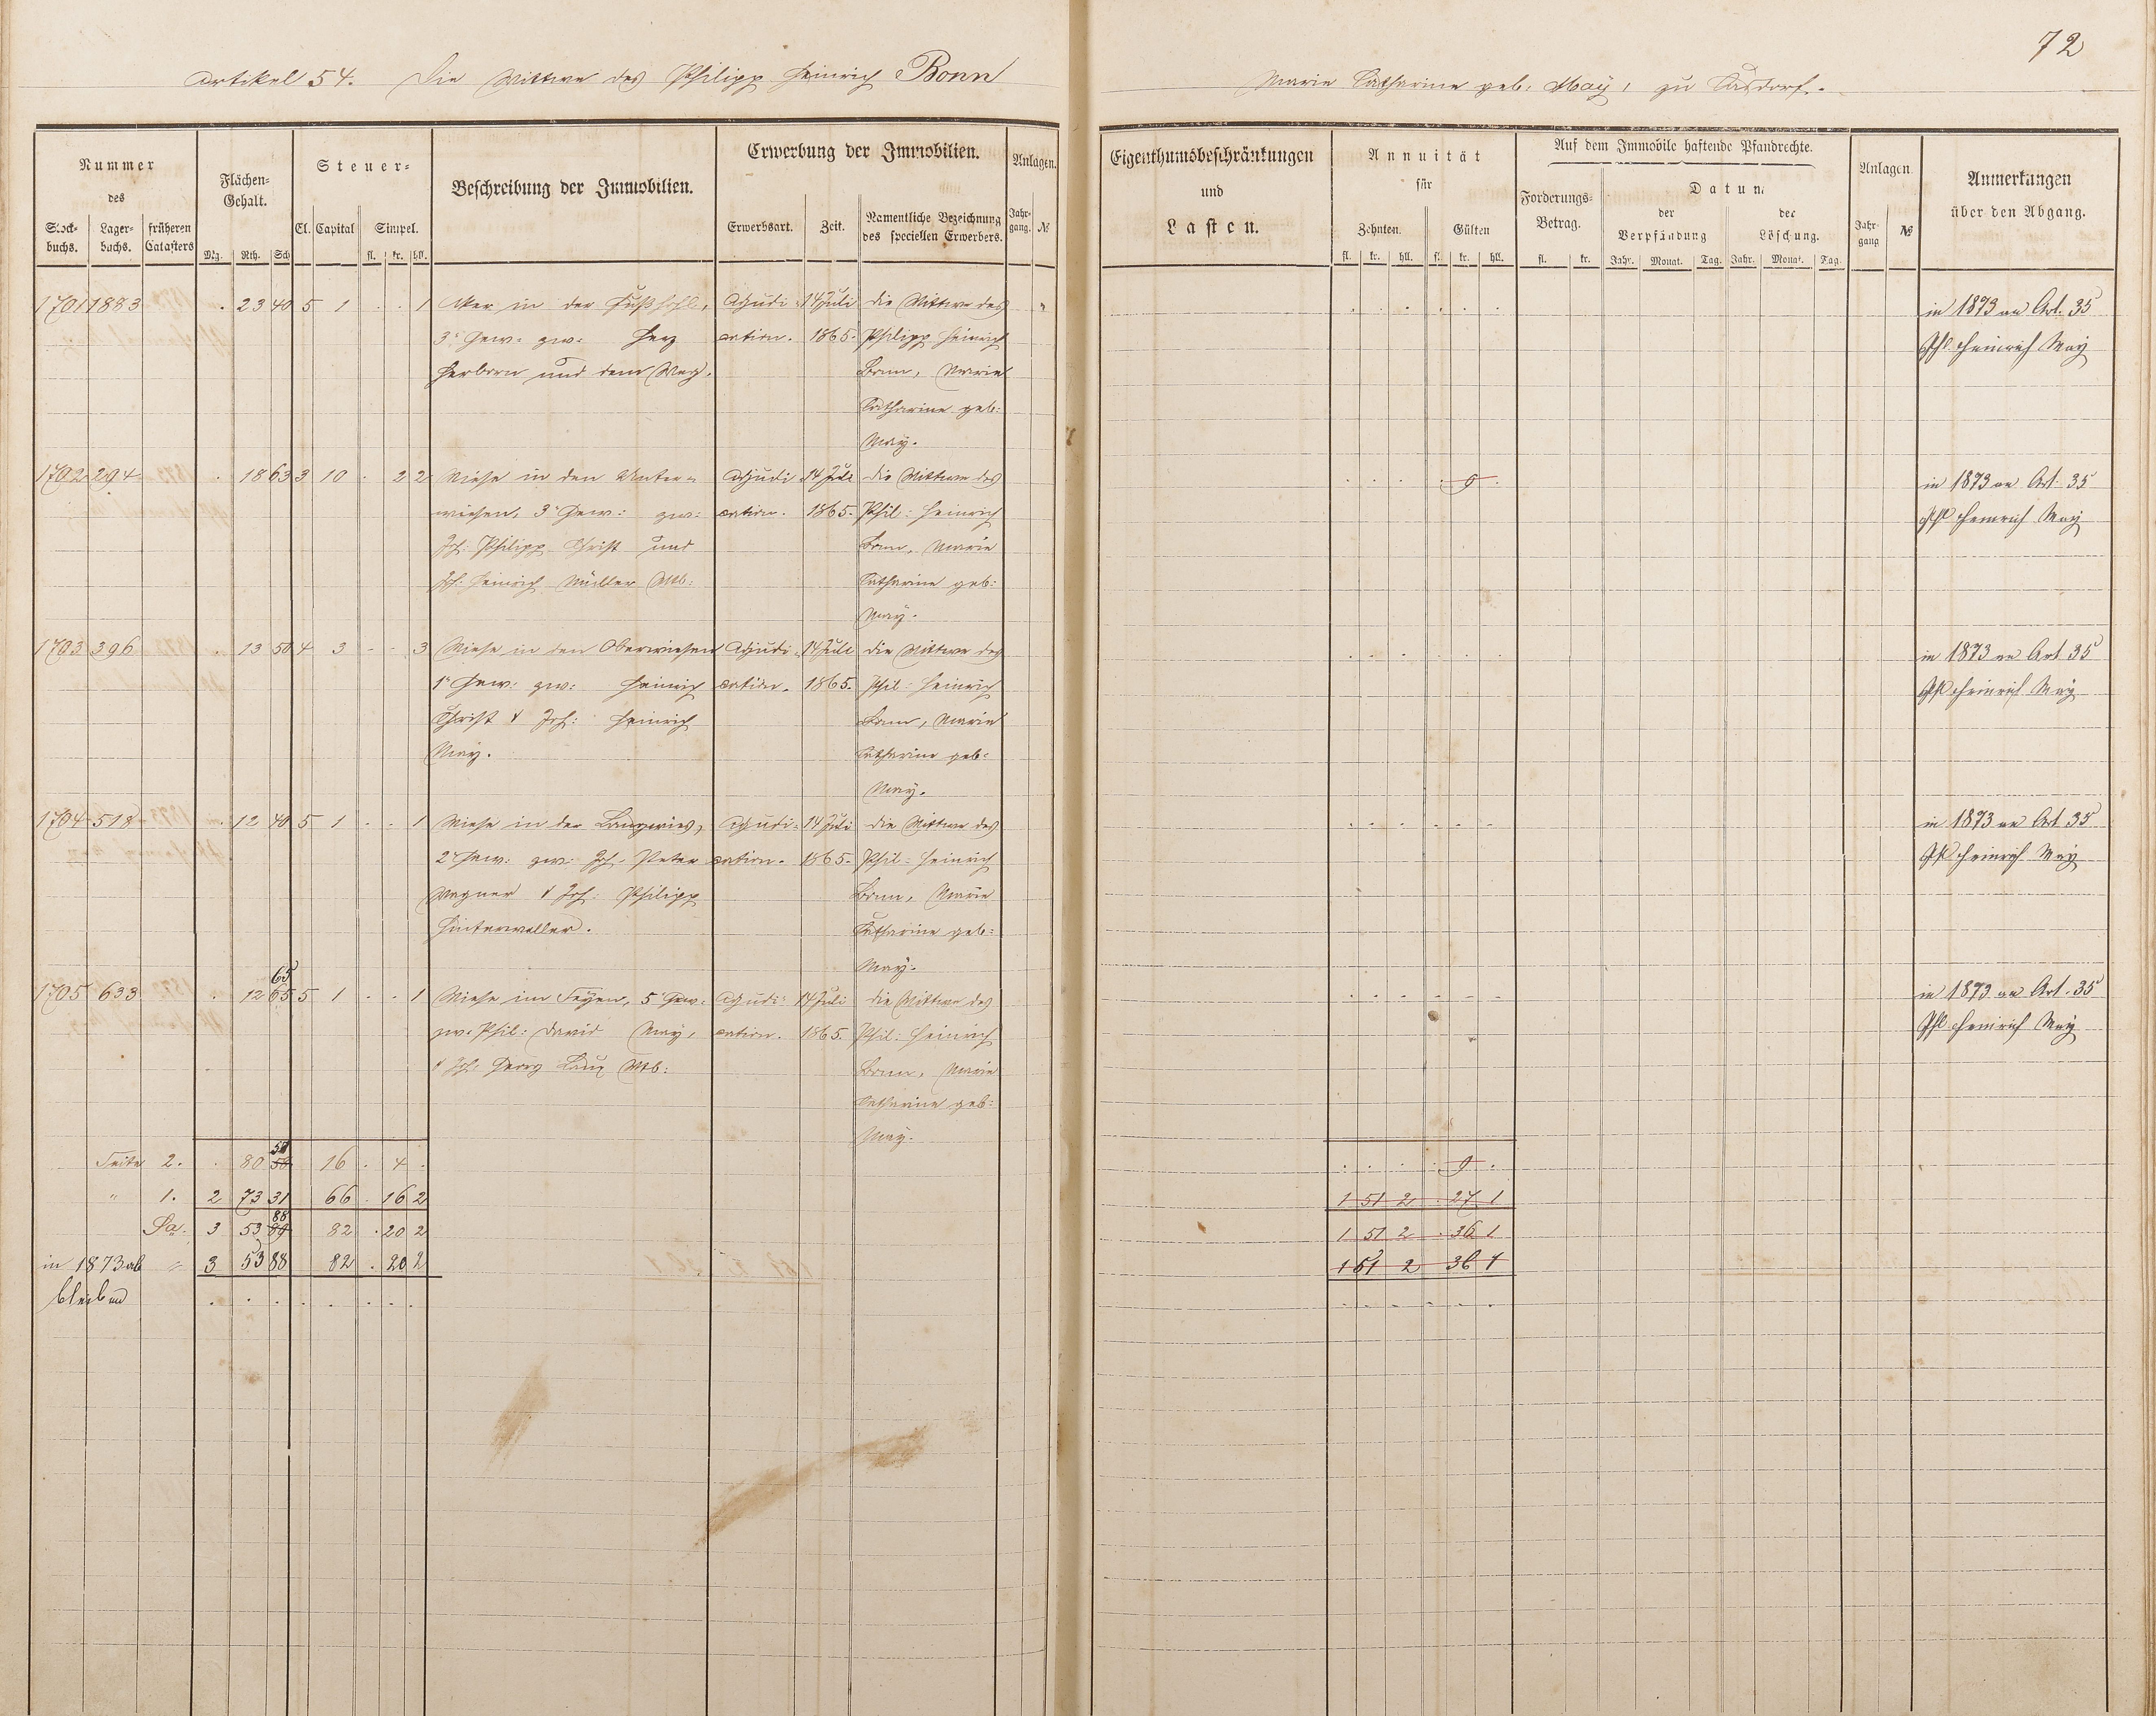 72
Artikel 54. Die Wittwe des Philipp Heinrich Bonn
Marie Catharine geb: May, zu Casdorf.
Nummer des
Stock-buchs. Lager-buchs. früheren Catasters
Flächen-Gehalt.
Mg. Rth. Sch
Steuer-
Cl. Capital Simpel.
fl. kr. hll.
Beschreibung der Immobilien.
Erwerbung der Immobilien.
Erwerbsart. Zeit. Namentliche Bezeichnung des speciellen Erwerbers.
Anlagen.
Jahr-gang. №
Eigenthumsbeschränkungen und Lasten.
Annuität für
Zehnten. Gülten
fl. kr. hll. fl. kr. hll.
Auf dem Immobile haftende Pfandrechte.
Forderungs-Betrag.
fl. kr.
Datum
der Verpfändung der Löschung.
Jahr. Monat. Tag. Jahr. Monat. Tag.
Anlagen.
Jahr-gang №
Anmerkungen über den Abgang.
1701 1883 . 23 40 5 1 . . 1 Aker in der Fußhohl, Adjudi- 14 Juli die Wittwe des
3r Gew: zw: Herz cation. 1865. Philipp Heinrich
Herborn und dem Weg. Bonn, Marie
Catharine geb:
May.
in 1873 an Art. 35
Phl Heinrich May
1702 294 . 18 63 3 10 . 2 2 Wiese in den Unter- Adjudi- 14 Juli die Wittwe des
wiesen, 3r Gew: zw: cation. 1865. Phil: Heinrich
Joh: Philipp Christ und Bonn, Marie
Joh: Heinrich Müller Wtb: Catharine geb:
May.
9
in 1873 an Art. 35
Phl Heinrich May
1703 396 . 13 50 4 3 - - 3 Wiese in den Oberwiesen Adjudi- 14 Juli die Wittwe des
1r Gew: zw: Heinrich cation. 1865. Phil: Heinrich
Christ & Joh: Heinrich Bonn, Marie
May. Catharine geb:
May.
in 1873 an Art 35
Phl Heinrich May
1704 518 . 12 40 5 1 . . 1 Wiese in der Langwies, Adjudi- 14 Juli die Wittwe des
2r Gew: zw: Joh. Peter cation. 1865. Phil: Heinrich
Wagner & Joh: Philipp Bonn, Marie
Hinterwaller. Catharine geb:
May.
in 1873 an Art 35
Phl Heinrich May
65
1705 633 . 12 65 5 1 . . 1 Wiese im 5r Gew: Adjudi- 14 Juli die Wittwe des
zw: Phil: David May, cation. 1865. Phil: Heinrich
& Joh: Georg Wtb: Bonn, Marie
Catharine geb:
May.
in 1873 an Art. 35
Phl Heinrich May
Seite 2. . 80 58 16 . 4 .
9
" 1. 2 73 31 66 . 16 2
1 51 2 . 27 1
88
Sa. 3 53 89 82 . 20 2
1 51 2 . 36 1
in 1873 ab " 3 53 88 82 . 20 2
1 51 2 36 1
bleiben